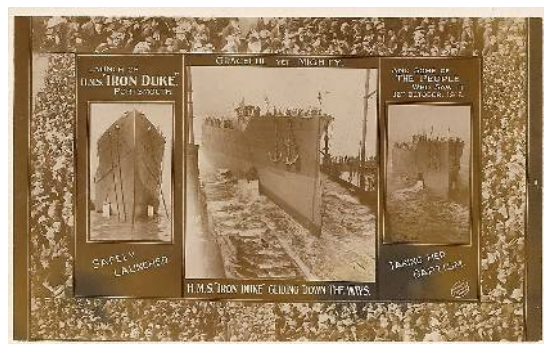 LAUNCH OF
H.M.S. "IRON DUKE."
PORTSMOUTH
SAFELY
LAUNCHED.
GRACEFUL YET MIGHTY.
H.M.S. "IRON DUKE" GLIDING DOWN THE WAYS.
AND SOME OF
THE PEOPLE
WHO SAW IT
12TH OCTOBER, 1912.
TAKING HER
BAPTISM.